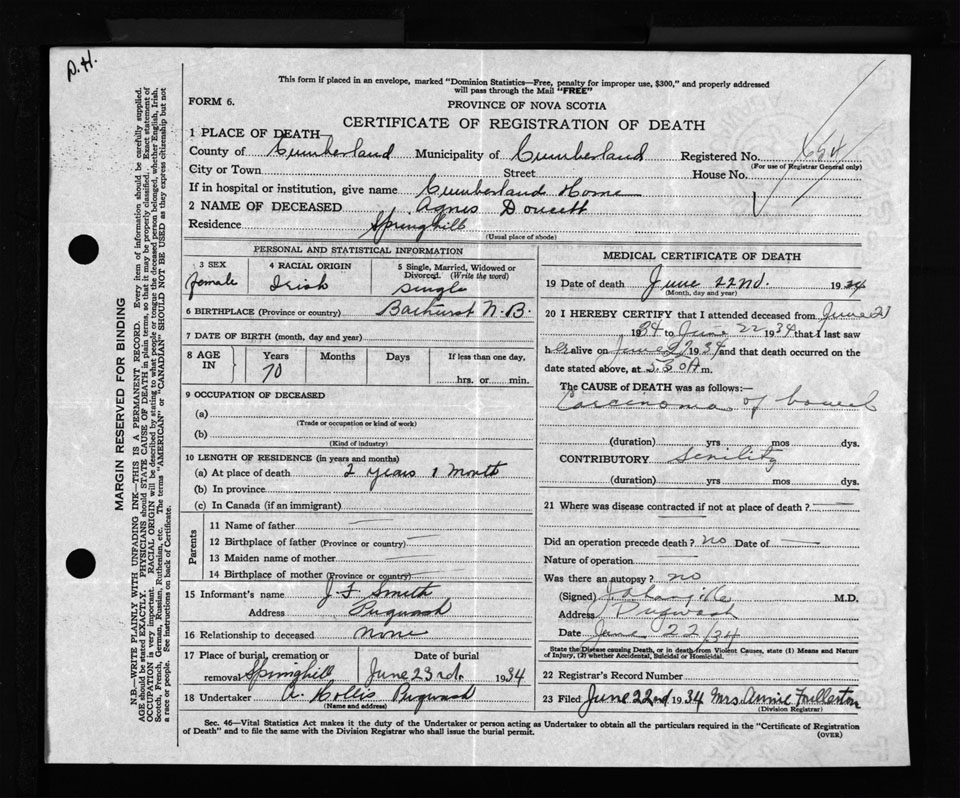 D.H.
This form if placed in an envelope, marked "Dominion Statistics—Free, penalty for improper use, $300," and properly addressed
will pass through the Mail "FREE"
FORM 6.
PROVINCE OF NOVA SCOTIA
CERTIFICATE OF REGISTRATION OF DEATH
1 PLACE OF DEATH
County of Cumberland Municipality of Cumberland Registered No.
(For use of Registrar General only)
City or Town Street House No.
If in hospital or institution, give name Cumberland Home
2 NAME OF DECEASED Agnes Doucett
Residence Springhill
(Usual place of abode)
PERSONAL AND STATISTICAL INFORMATION
3 SEX 4 RACIAL ORIGIN 5 Single, Married, Widowed or Divorced. (Write the word)
female Irish Single
6 BIRTHPLACE (Province or country) Bathurst N.B.
7 DATE OF BIRTH (month, day and year)
8 AGE IN Years Months Days If less than one day,
70 hrs. or min.
9 OCCUPATION OF DECEASED
(a)
(Trade or occupation or kind of work)
(b)
(Kind of industry)
10 LENGTH OF RESIDENCE (in years and months)
(a) At place of death 2 years 1 month
(b) In province
(c) In Canada (if an immigrant)
Parents
11 Name of father —
12 Birthplace of father (Province or country) —
13 Maiden name of mother —
14 Birthplace of mother (Province or country) —
15 Informant's name J F Smith
Address Pugwash
16 Relationship to deceased none
17 Place of burial, cremation or Date of burial
removal Springhill June 23rd. 1934
18 Undertaker A. Hollis Pugwash
(Name and address)
MEDICAL CERTIFICATE OF DEATH
19 Date of death June 22nd. 1934
(Month, day and year)
20 I HEREBY CERTIFY that I attended deceased from June 21
1934 to June 22 1934 that I last saw
her alive on June 1934 and that death occurred on the
date stated above, at 5.30 A m.
The CAUSE OF DEATH was as follows:—
Carcinoma of bowel
(duration) yrs mos dys.
CONTRIBUTORY Senility
(duration) yrs mos dys.
21 Where was disease contracted if not at place of death? —
Did an operation precede death? no Date of —
Nature of operation —
Was there an autopsy? no
(Signed) M.D.
Address Pugwash
Date June 22/34
State the Disease causing Death, or in death from Violent Causes, state (1) Means and Nature
of Injury, (2) whether Accidental, Suicidal or Homicidal.
22 Registrar's Record Number
23 Filed June 22nd 1934 Mrs. Annie Fullerton
(Division Registrar)
Sec. 46—Vital Statistics Act makes it the duty of the Undertaker or person acting as Undertaker to obtain all the particulars required in the "Certificate of Registration
of Death" and to file the same with the Division Registrar who shall issue the burial permit.
(OVER)
MARGIN RESERVED FOR BINDING
N.B.—WRITE PLAINLY WITH UNFADING INK—THIS IS A PERMANENT RECORD. Every item of information should be carefully supplied.
AGE should be stated EXACTLY. PHYSICIANS should STATE CAUSE OF DEATH in plain terms, so that it may be properly classified. Exact statement of
OCCUPATION is very important. RACIAL ORIGIN will be described by stating to what people or tongue the deceased person belonged, whether English, Irish,
Scotch, French, German, Russian, Ruthenian, etc. The terms "AMERICAN" or "CANADIAN" SHOULD NOT BE USED as they express citizenship but not
a race or people. See instructions on back of Certificate.